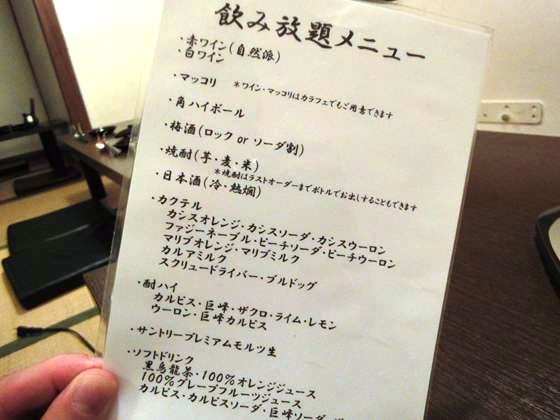 飲み放題メニュー
・赤ワイン(自然派)
・白ワイン
・マッコリ ＊ワイン・マッコリはカラフェでもご用意できます
・角ハイボール
・梅酒(ロック or ソーダ割)
・焼酎(芋・麦・米)
＊焼酎はラストオーダーまでボトルでお出しすることもできます
・日本酒(冷・熱燗)
・カクテル
カシスオレンジ・カシスソーダ・カシスウーロン
ファジーネーブル・ピーチソーダ・ピーチウーロン
マリブオレンジ・マリブミルク
カルアミルク
スクリュードライバー・ブルドッグ
・酎ハイ
カルピス・巨峰・ザクロ・ライム・レモン
ウーロン・巨峰カルピス
・サントリープレミアムモルツ生
・ソフトドリンク
黒烏龍茶・100%オレンジジュース
100%グレープフルーツジュース
カルピス・カルピスソーダ・巨峰ソーダ